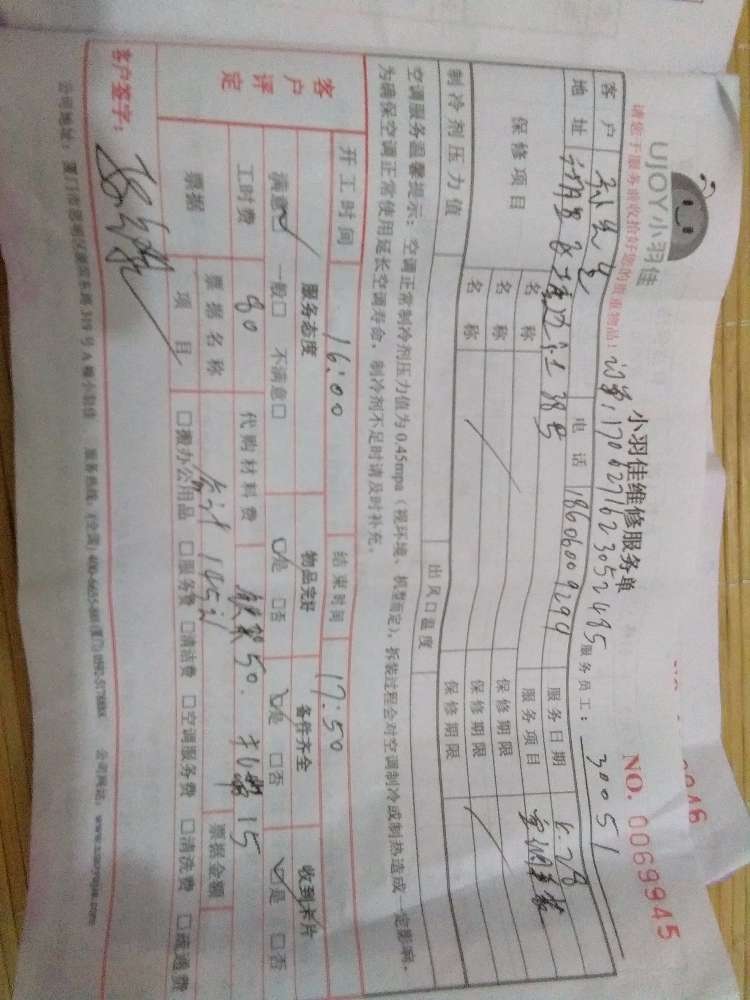 UJOY小羽佳
小羽佳维修服务单
NO. 0069945
请您于服务前收拾好您的贵重物品！
订单：17062762305 2485 服务员工：30051
客户 先生 电话 18606009299 服务日期 6.28
地址 38号 服务项目 空调
保修项目 名称 保修期限
名称 保修期限
名称 保修期限
制冷剂压力值 出风口温度
空调服务温馨提示：空调正常制冷剂压力值为0.45mpa（视环境、机型而定），拆装过程会对空调制冷或制热造成一定影响，
为确保空调正常使用延长空调寿命，制冷剂不足时请及时补充。
开工时间 16:00 结束时间 17:50
客户评定 服务态度 物品完好 备件齐全 收到卡片
满意☑ 一般□ 不满意□ ☑是 □否 ☑是 □否 ☑是 □否
工时费 80 代购材料费 50. 15
票据 票据名称 合计 145元 票据金额
项目 □搬办公用品 □服务费 □清洁费 □空调服务费 □清洗费 □疏通费
客户签字：
公司地址：厦门市思明区 319号A幢小羽佳 服务热线：(全国) (厦门) 公司网站：